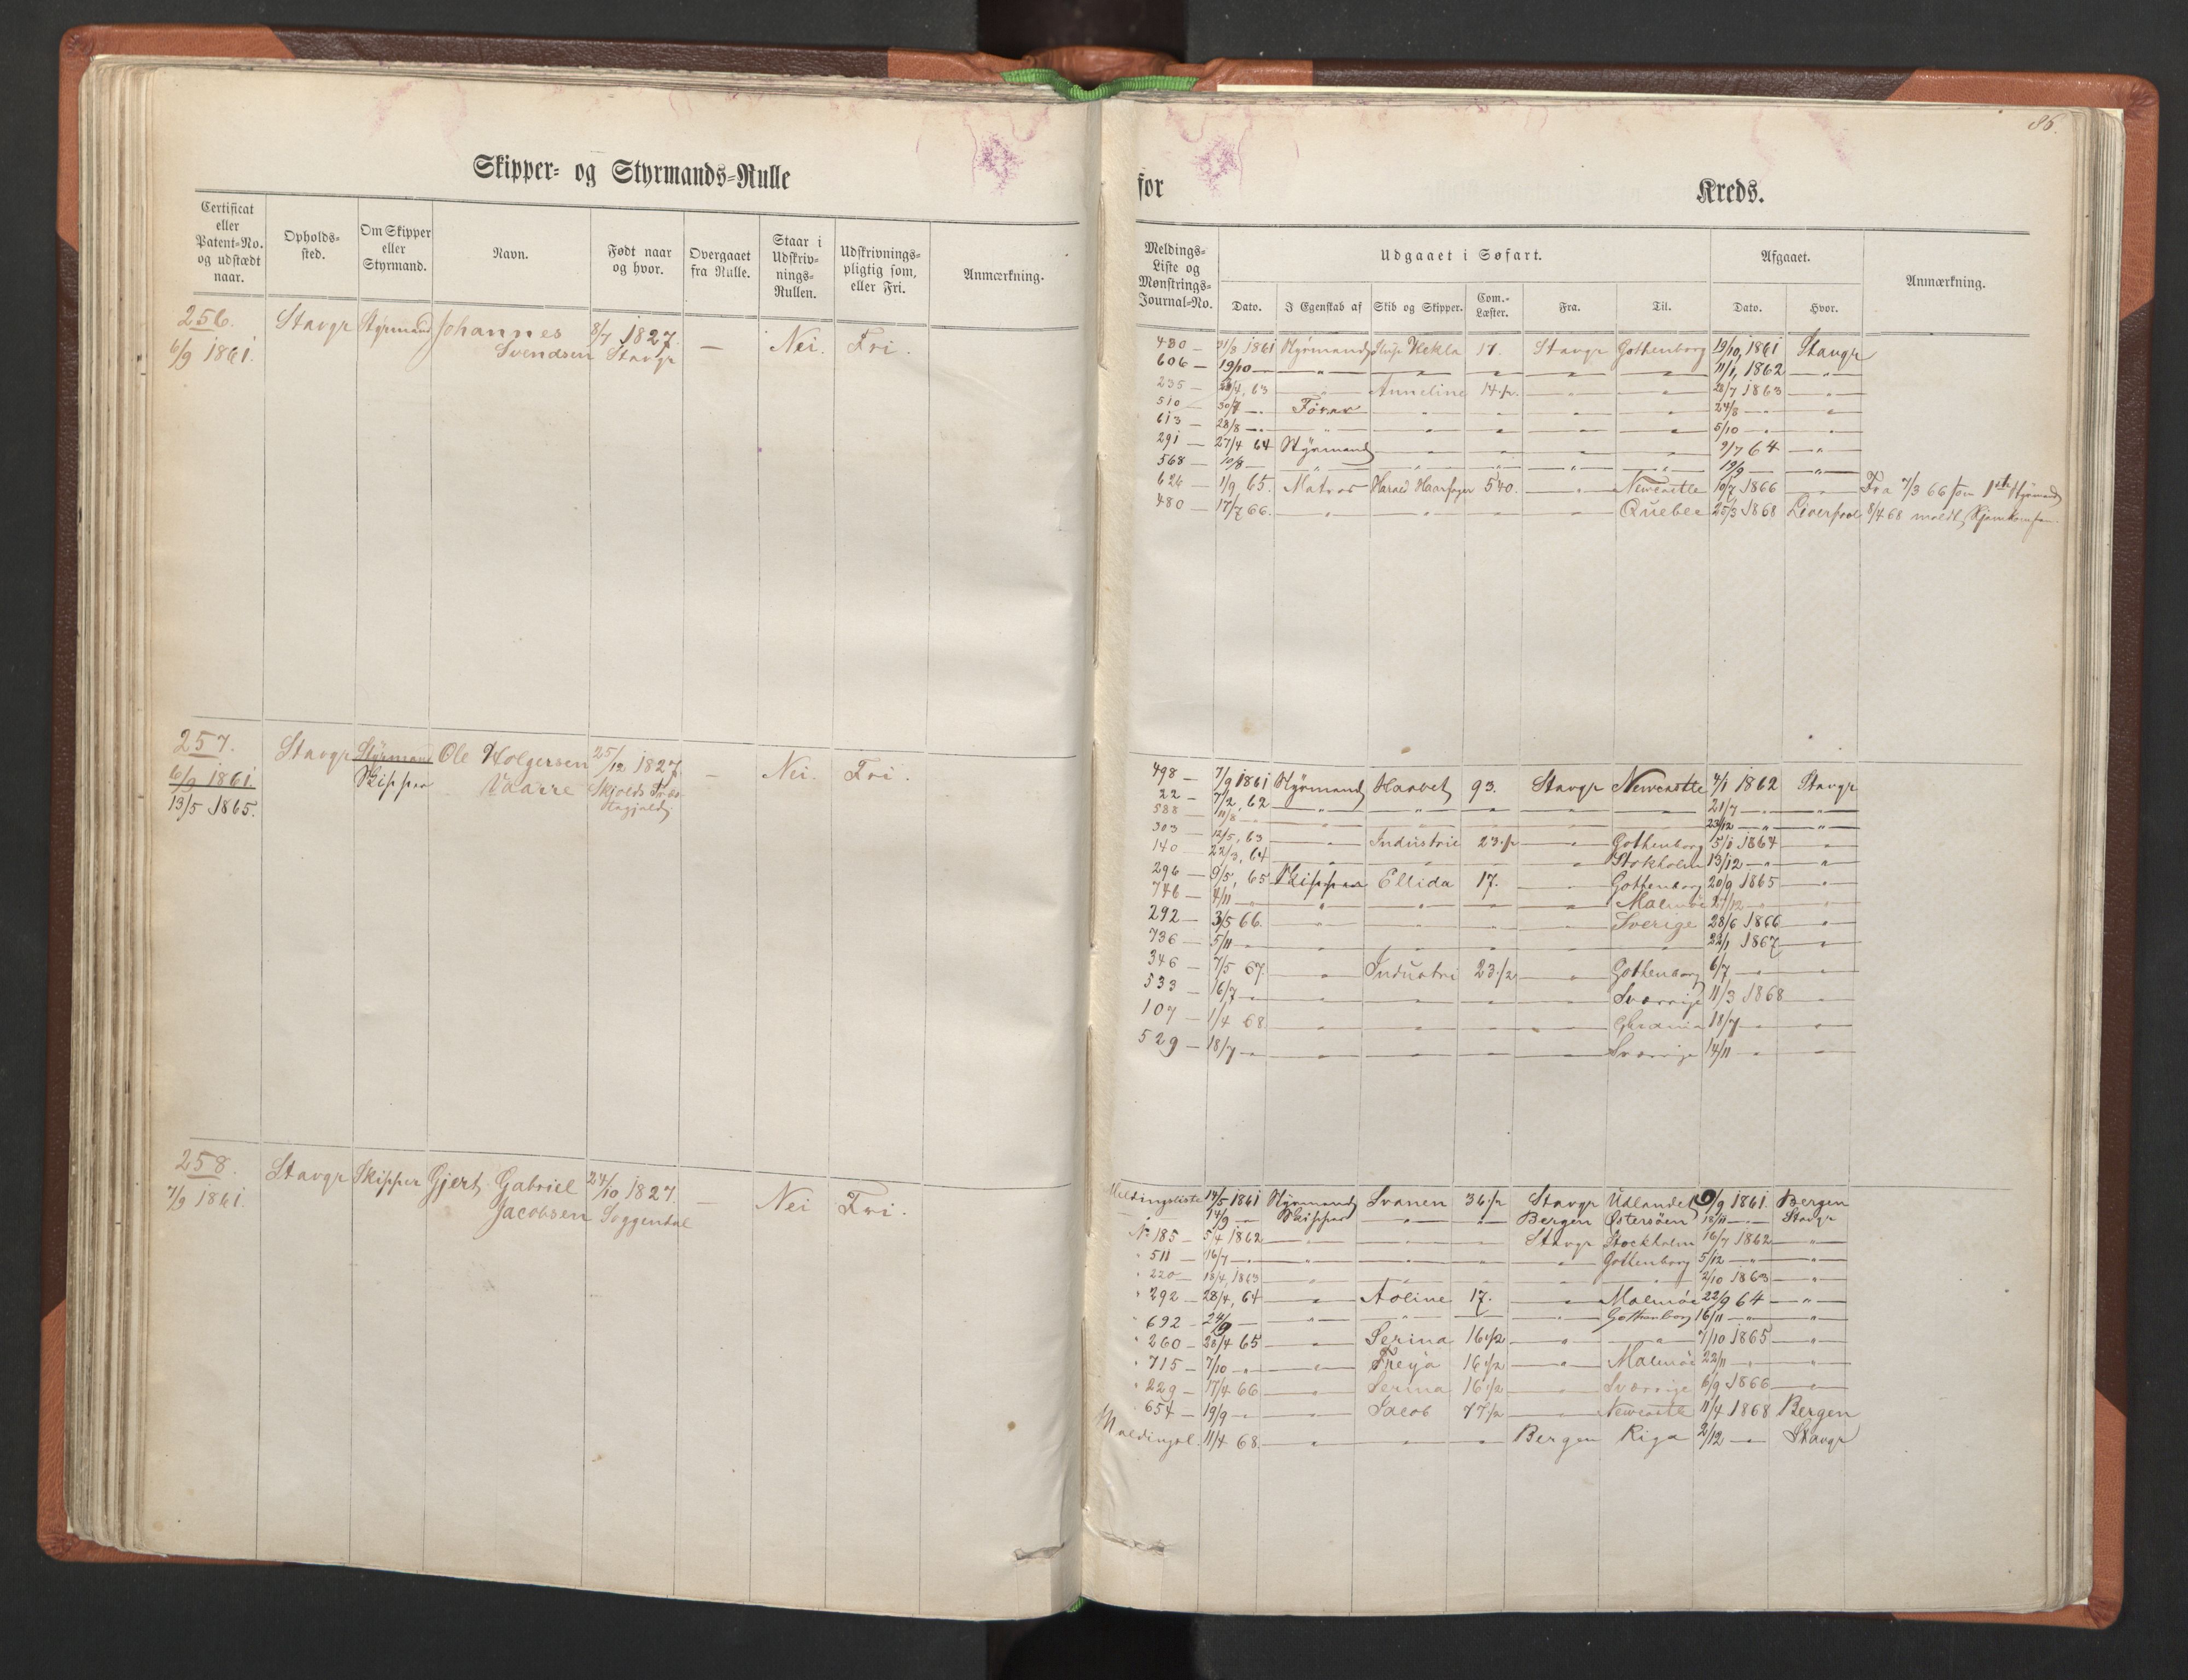 86.
Skipper- og Styrmands-Rulle
for Kreds.
Certificat eller Patent-No. og udstædt naar.
Opholds-sted.
Om Skipper eller Styrmand.
Navn.
Født naar og hvor.
Overgaaet fra Rulle.
Staar i Udskriv-nings-Rullen.
Udskrivnings-pligtig som, eller Fri.
Anmærkning.
Meldings-Liste og Mønstrings-Journal-No.
Udgaaet i Søfart.
Dato. I Egenskab af Skib og Skipper. Com.-Læster. Fra. Til.
Afgaaet.
Dato. Hvor.
Anmærkning.
256. Stavgr Styrmand Johannes 8/7 1827. — Nei. Fri.
6/9 1861. Svendsen Stavgr
480 — 31/8 1861 Styrmand Hekla 17. Stavgr Gothenborg 19/10, 1861 Stavgr
606 — 19/10 — " — " — " — " — " 11/1, 1862 — "
235 — 63 — " Anneline 14 1/2 — " — " 28/7 1863 — "
510 — 30/7 — " Fører — " — " — " — " 24/8 — " — "
613 — 28/8 — " — " — " — " — " — " 5/10 — " — "
291 — 27/4 64 Styrmand — " — " — " — " 2/7 64 — "
568 — 10/8 — " — " — " — " — " 19/9 — " — "
626 — 1/9 65. Matros Harald Haarfager 540. — " Newcastle 10/7 1866 — " Fra 7/3 66 som 1ste Styrmand
480 — 17/7 66. — " — " — " — " Quebec 25/3 1868 Liverpool 8/4 68 meldt Hjemkomsten.
257. Stavgr Styrmand Ole Holgersen 25/12 1827. — Nei. Fri.
6/9 1861. Skipper Vaarre Skjolds
13/5 1865.
498 — 7/9 1861 Styrmand Haabet 93. Stavgr Newcastle 4/1 1862 Stavgr
22 — 7/2, 62 — " — " — " — " — " 21/7 — " — "
588 — 11/8 — " — " — " — " — " — " 23/12 — " — "
303 — 12/5, 63 — " Industrie 23 1/2 — " Gothenborg 5/1 1864 — "
140 — 22/3, 64 — " — " — " — " Stokholm 13/12 — " — "
296 — 9/5, 65 Skipper Ellida 17. — " Gothenborg 20/9 1865 — "
746 — 4/11 — " — " — " — " — " Malmøe 27/12 — " — "
292 — 3/5 66. — " — " — " — " Sverige 28/6 1866 — "
736 — 5/11 — " — " — " — " — " — " 22/1 1867 — "
346 — 7/5 67. — " Industri 23 1/2 — " Gothenborg 6/7 — " — "
533 — 16/7 — " — " — " — " — " Sverrige 11/3 1868 — "
107 — 1/4 68. — " — " — " — " 18/7 — " — "
529 — 18/7 — " — " — " — " — " Sverrige 14/11 — " — "
258. Stavgr Skipper Gjert Gabriel 24/10 1827. — Nei Fri.
7/9 1861. Jacobsen Soggendal
Meldingsliste 14/5 1861 Styrmand Svanen 36 1/2 Stavgr Udlandet 9/9 1861. Bergen
14/9 — Skipper — " — " Bergen Østersøen 18/11 — " — Stavgr
No 185 — 5/4 1862 — " — " — " Stavgr Stockholm 16/7 1862 — "
" 511 — 16/7 — " — " — " — " — " Gothenborg 5/12 — " — "
" 220 — 18/4, 1863 — " — " — " — " — " 2/10 1863 — "
" 292 — 28/4, 64 — " Aoline 17. — " Malmøe 22/9 64 — "
" 692 — 24/9 — " — " — " — " — " Gothenborg 16/11 — " — "
" 260 — 28/4 65 — " Serina 16 1/2 — " — " 7/10 1865 — "
" 715 — 7/10 — " — " Freya 16 1/2 — " Malmøe 22/11 — " — "
" 229 — 17/4 66 — " Serina 16 1/2 — " Sverrige 6/9 1866 — "
654 — 19/9 — " — " Jacob 77 1/2 — " Newcastle 11/4 1868 Bergen
Meldingsl. 11/4 68. — " — " — " Bergen Riga 2/12 — " Stavgr